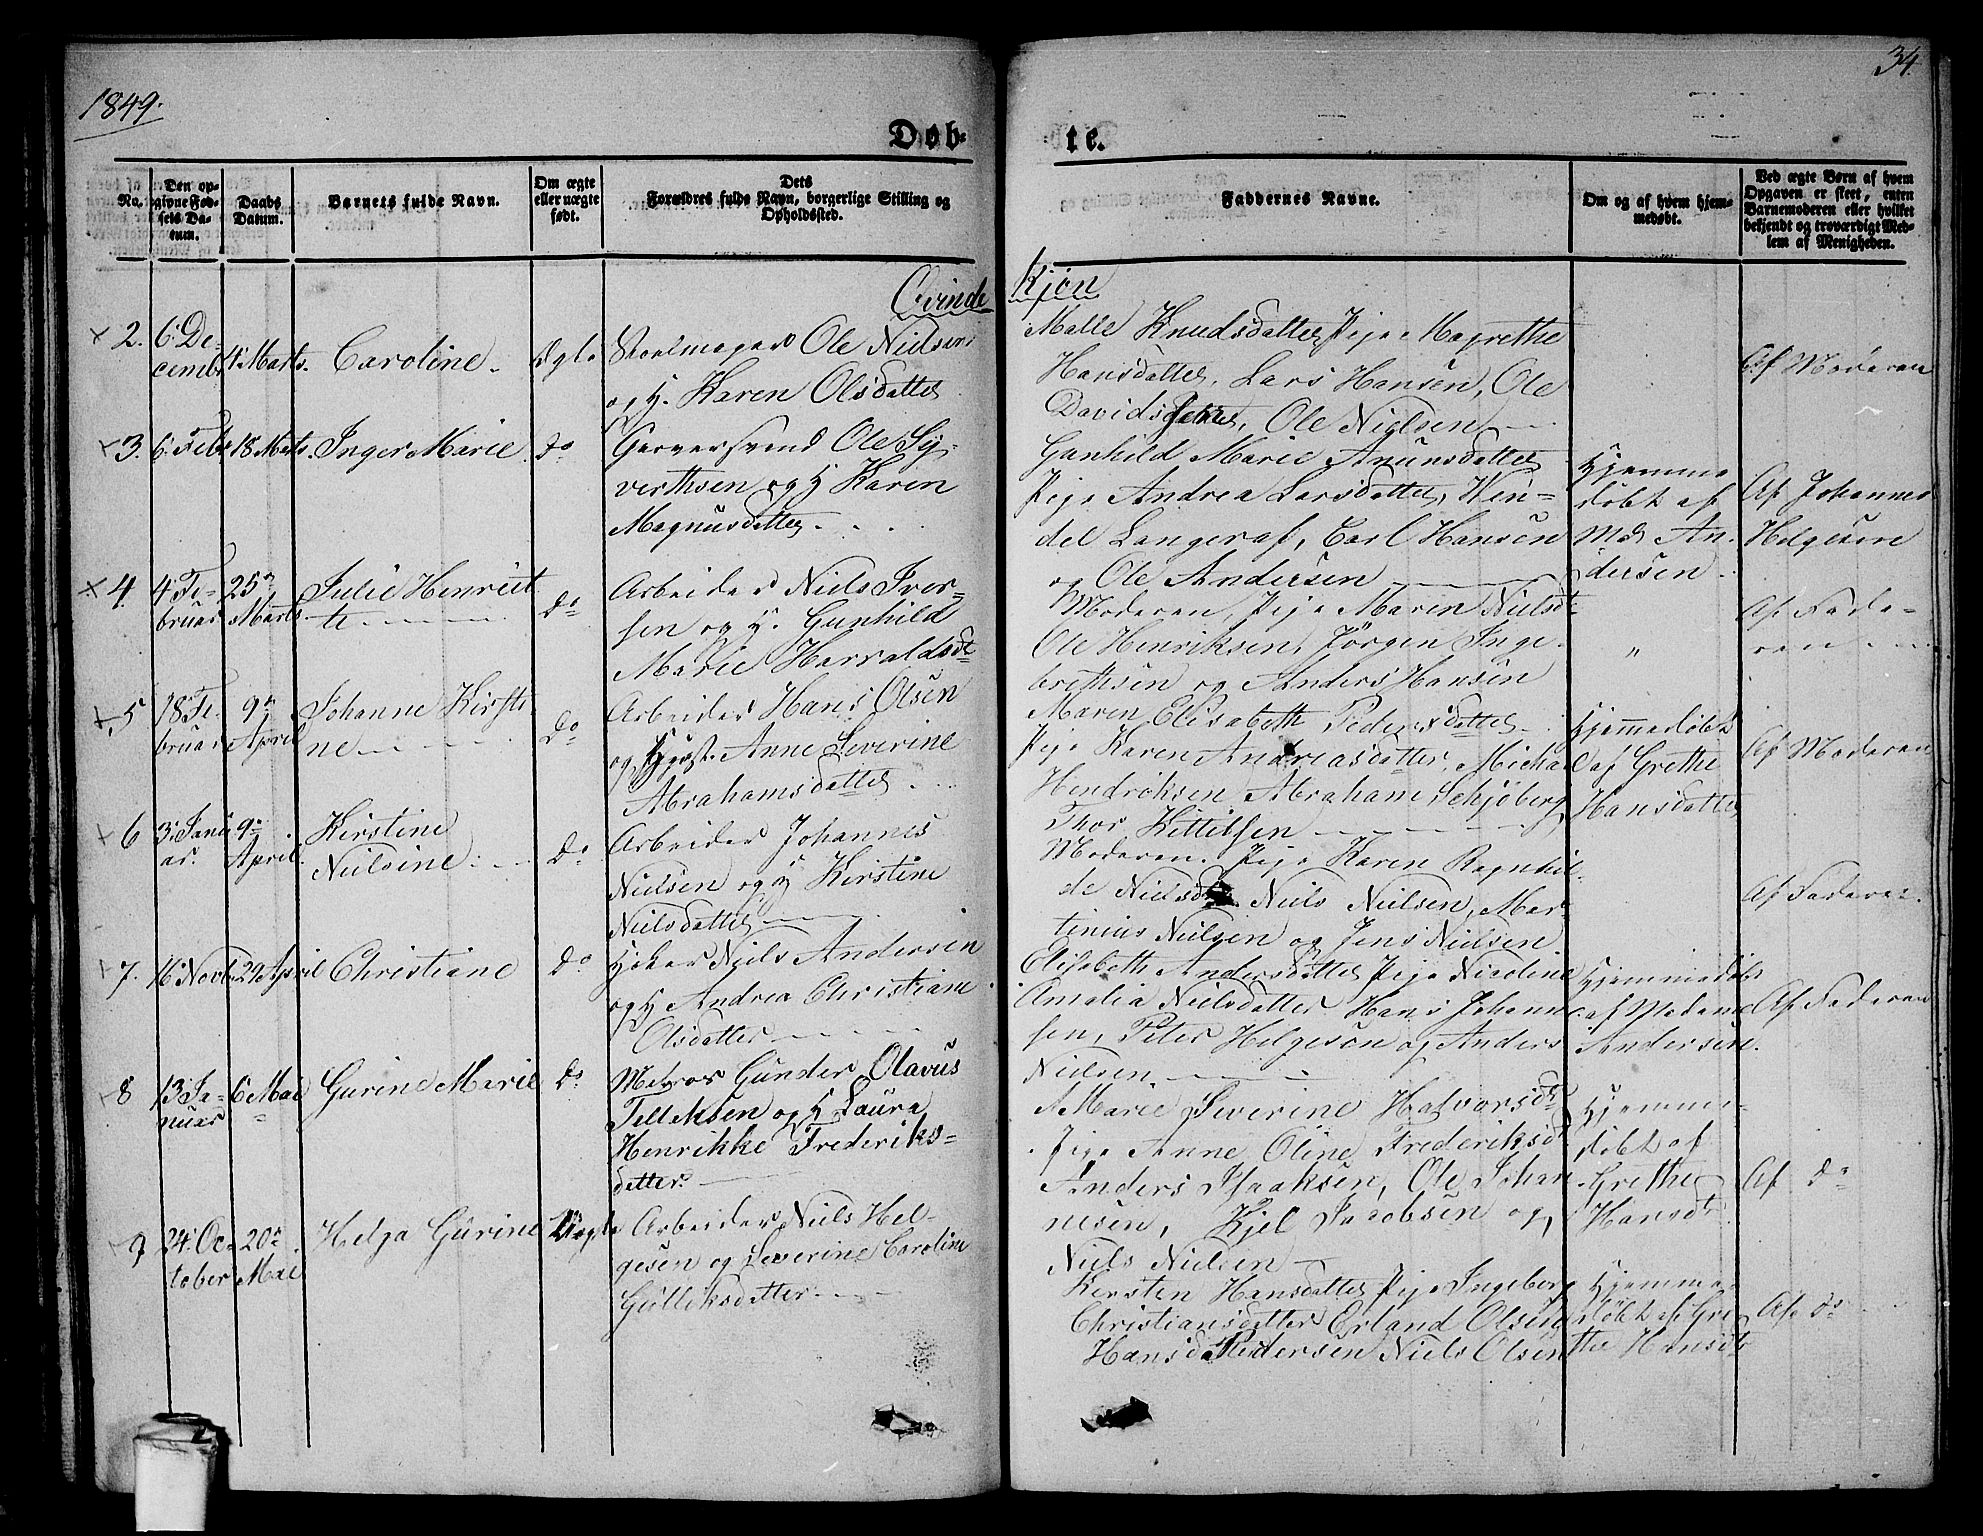 34.
1849.
Døb-
te.
No.
Den op-
givne Fød-
sels Da-
tum.
Daabs
Datum.
Barnets fulde Navn.
Om ægte
eller uægte
født.
Dets
Forældres fulde Navn, borgerlige Stilling og
Opholdssted.
Faddernes Navne.
Om og af hvem hjem-
medøbt.
Ved ægte Børn af hvem
Opgaven er skeet, enten
Barnemoderen eller hvilket
bekjendt og troværdigt Med-
lem af Menigheden.
Qvinde
Kjøn
2.
6. De-
cembr
4 Marts.
Caroline.
Ægte
Stoelmager Ole Nielsen
og H. Karen Olsdatter
Malle Knudsdatter, Pige Magrethe
Hansdatter, Lars Hansen, Ole
Davidsen, Ole Nielsen
Af Moderen
3.
6. Feb.
18 Marts.
Inger Marie.
Do
Garversvend Ole Sy-
verthsen og H Karen
Magnusdatter.
Gunhild Marie Amunsdatter
Pige Andrea Larsdatter, Wen-
del Langeraf, Carl Hansen
og Ole Andersen
Hjemme
døbt af
Md. An-
dersen.
Af Johannes
Helgesen
4.
4 Fe-
bruar
25n
Marts.
Julie Henriet
te
Do
Arbeider Niels Iver-
sen og H. Gunhild
Marie Harraldsdt
Moderen, Pige Maren Nielsdt
Ole Henriksen, Jørgen Inge-
brethsen og Anders Hansen
"
Af Fade-
ren
5
18 Fe-
bruar
9n
April
Johanne Kirsti
ne
Do
Arbeider Hans Olsen
og Anne Severine
Abrahamsdatter
Maren Elisabeth Pedersdatter.
Pige Karen Andreasdatter, Micha
Hendriksen Abraham Schjøberg
Thor Kittilsen
Hjemmedøbt
af Grethe
Hansdatter
Af Moderen
6
3. Janu
ar.
9n
April.
Kirstine
Nielsine.
Do
Arbeider Johannes
Nielsen og H Kirstine
Nielsdatter
Moderen. Pige Karen Ragnhil-
de Nielsdt Niels Nielsen, Mar-
tinius Nielsen og Jens Nielsen.
Af Faderen.
7.
16 Novb.
29 April
Christiane
Do
Høker Niels Andersen
og H Andrea Christiane
Olsdatter
Elisabeth Andersdatter Pige Nicoline
Amalia Nielsdatter Hans Johanne-
sen, Peter Helgesen og Anders
Nielsen.
Hjemmedøbt
af Madame
Andersen.
Af Faderen
8
13 Ja-
nuar
6 Mai
Gurine Marie
Do
Matros Gunder Olavus
Tellefsen og H Laura
Henrikke Frederiks-
datter.
Marie Severine Halvorsdt
Pige Anne Oline Frederiksdt
Anders Isaaksen, Ole Johan
nesen, Kjel Jacobsen og
Niels Nielsen
Hjemme-
døbt af
Grethe
Hansdt.
Af Do
9
24. Oc-
tober
20n
Mai
Helga Gurine
Uægte
Arbeider Niels Hel-
gesen og Severine Caroline
Gulliksdatter
Kirsten Hansdatter Pige Ingeborg
Christiansdatter Erland Olsen
Hans Pedersen Niels Olsen
Hjemme-
døbt af Gre
the Hansdt
Af Do